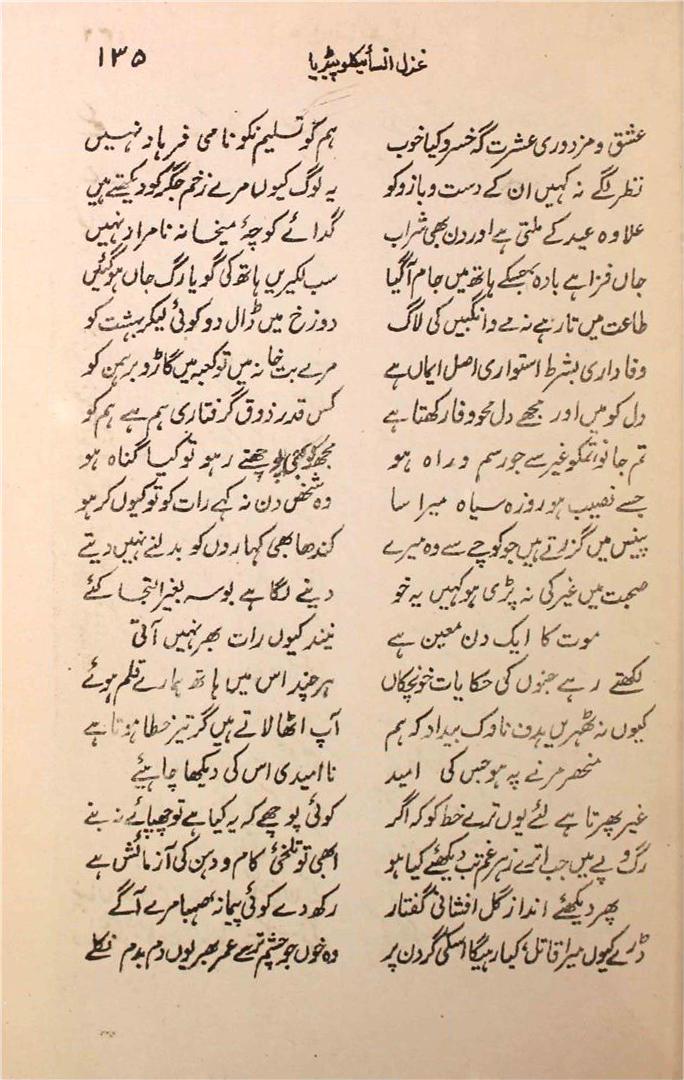 غزل انسائیکلوپیڈیا ۱۳۵
عشق و مزدوری عشرت گہ خسرو کیا خوب ہم کو تسلیم نکو نامی فرہاد نہیں
نظر لگے نہ کہیں ان کے دست و بازو کو یہ لوگ کیوں مرے زخم جگر کو دیکھتے ہیں
علاوہ عید کے ملتی ہے اور دن بھی شراب گدائے کوچۂ میخانہ نامراد نہیں
جاں فزا ہے بادہ جسکے ہاتھ میں جام آگیا سب لکیریں ہاتھ کی گویا رگ جاں ہوگئیں
طاعت میں تا رہے نہ مے و انگبیں کی لاگ دوزخ میں ڈال دو کوئی لیکر بہشت کو
وفاداری بشرط استواری اصل ایماں ہے مرے بت خانہ میں تو کعبہ میں گاڑو برہمن کو
دل کو میں اور مجھے دل محو وفا رکھتا ہے کس قدر ذوق گرفتاری ہم ہے ہم کو
تم جانو تمکو غیر سے جو رسم و راہ ہو مجھ کو بھی پوچھتے رہو تو کیا گناہ ہو
جسے نصیب ہو روزہ سیاہ میرا سا وہ شخص دن نہ کہے رات کو تو کیوں کر ہو
پینس میں گزرتے ہیں جو کوچے سے وہ میرے کندھا بھی کہاروں کو بدلنے نہیں دیتے
صحبت میں غیر کی نہ پڑی ہو کہیں یہ خو دینے لگا ہے بوسہ بغیر التجا کئے
موت کا ایک دن معین ہے نیند کیوں رات بھر نہیں آتی
لکھتے رہے جنوں کی حکایات خونچکاں ہرچند اس میں ہاتھ ہمارے قلم ہوئے
کیوں نہ ٹھہریں ہدف ناوک بیداد کہ ہم آپ اٹھا لاتے ہیں گر تیر خطا ہوتا ہے
منحصر مرنے پہ ہو جس کی امید ناامیدی اس کی دیکھا چاہیئے
غیر پھرتا ہے لئے یوں ترے خط کو کہ اگر کوئی پوچھے کہ یہ کیا ہے تو چھپائے نہ بنے
رگ و پے میں جب اترے زہر غم تب دیکھئے کیا ہو ابھی تو تلخئ کام و دہن کی آزمائش ہے
پھر دیکھئے انداز گل افشانئ گفتار رکھ دے کوئی پیمانۂ صہبا مرے آگے
ڈرے کیوں میرا قاتل، کیا رہیگا اسکی گردن پر وہ خوں جو چشم تر سے عمر بھر یوں دم بدم نکلے